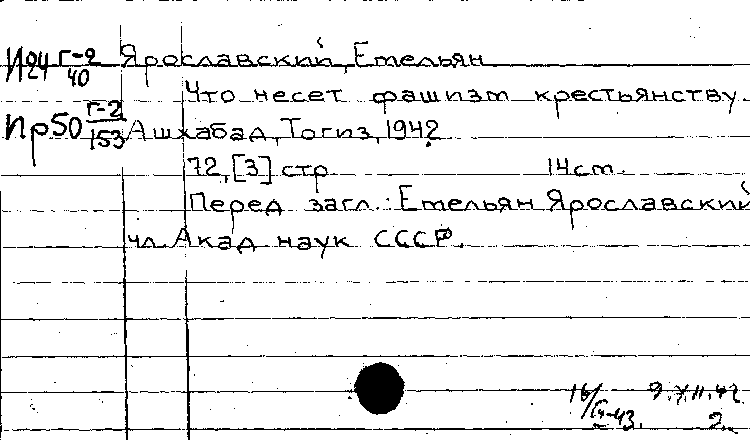 И24 Г-2/40 Ярославский, Емельян
Что несет фашизм крестьянству.
Пр50 Г-2/153 Ашхабад, Тогиз, 1942.
72, [3] стр. 14 ст.
Перед загл.: Емельян Ярославский
чл. Акад наук СССР.
9.XII.42
2.